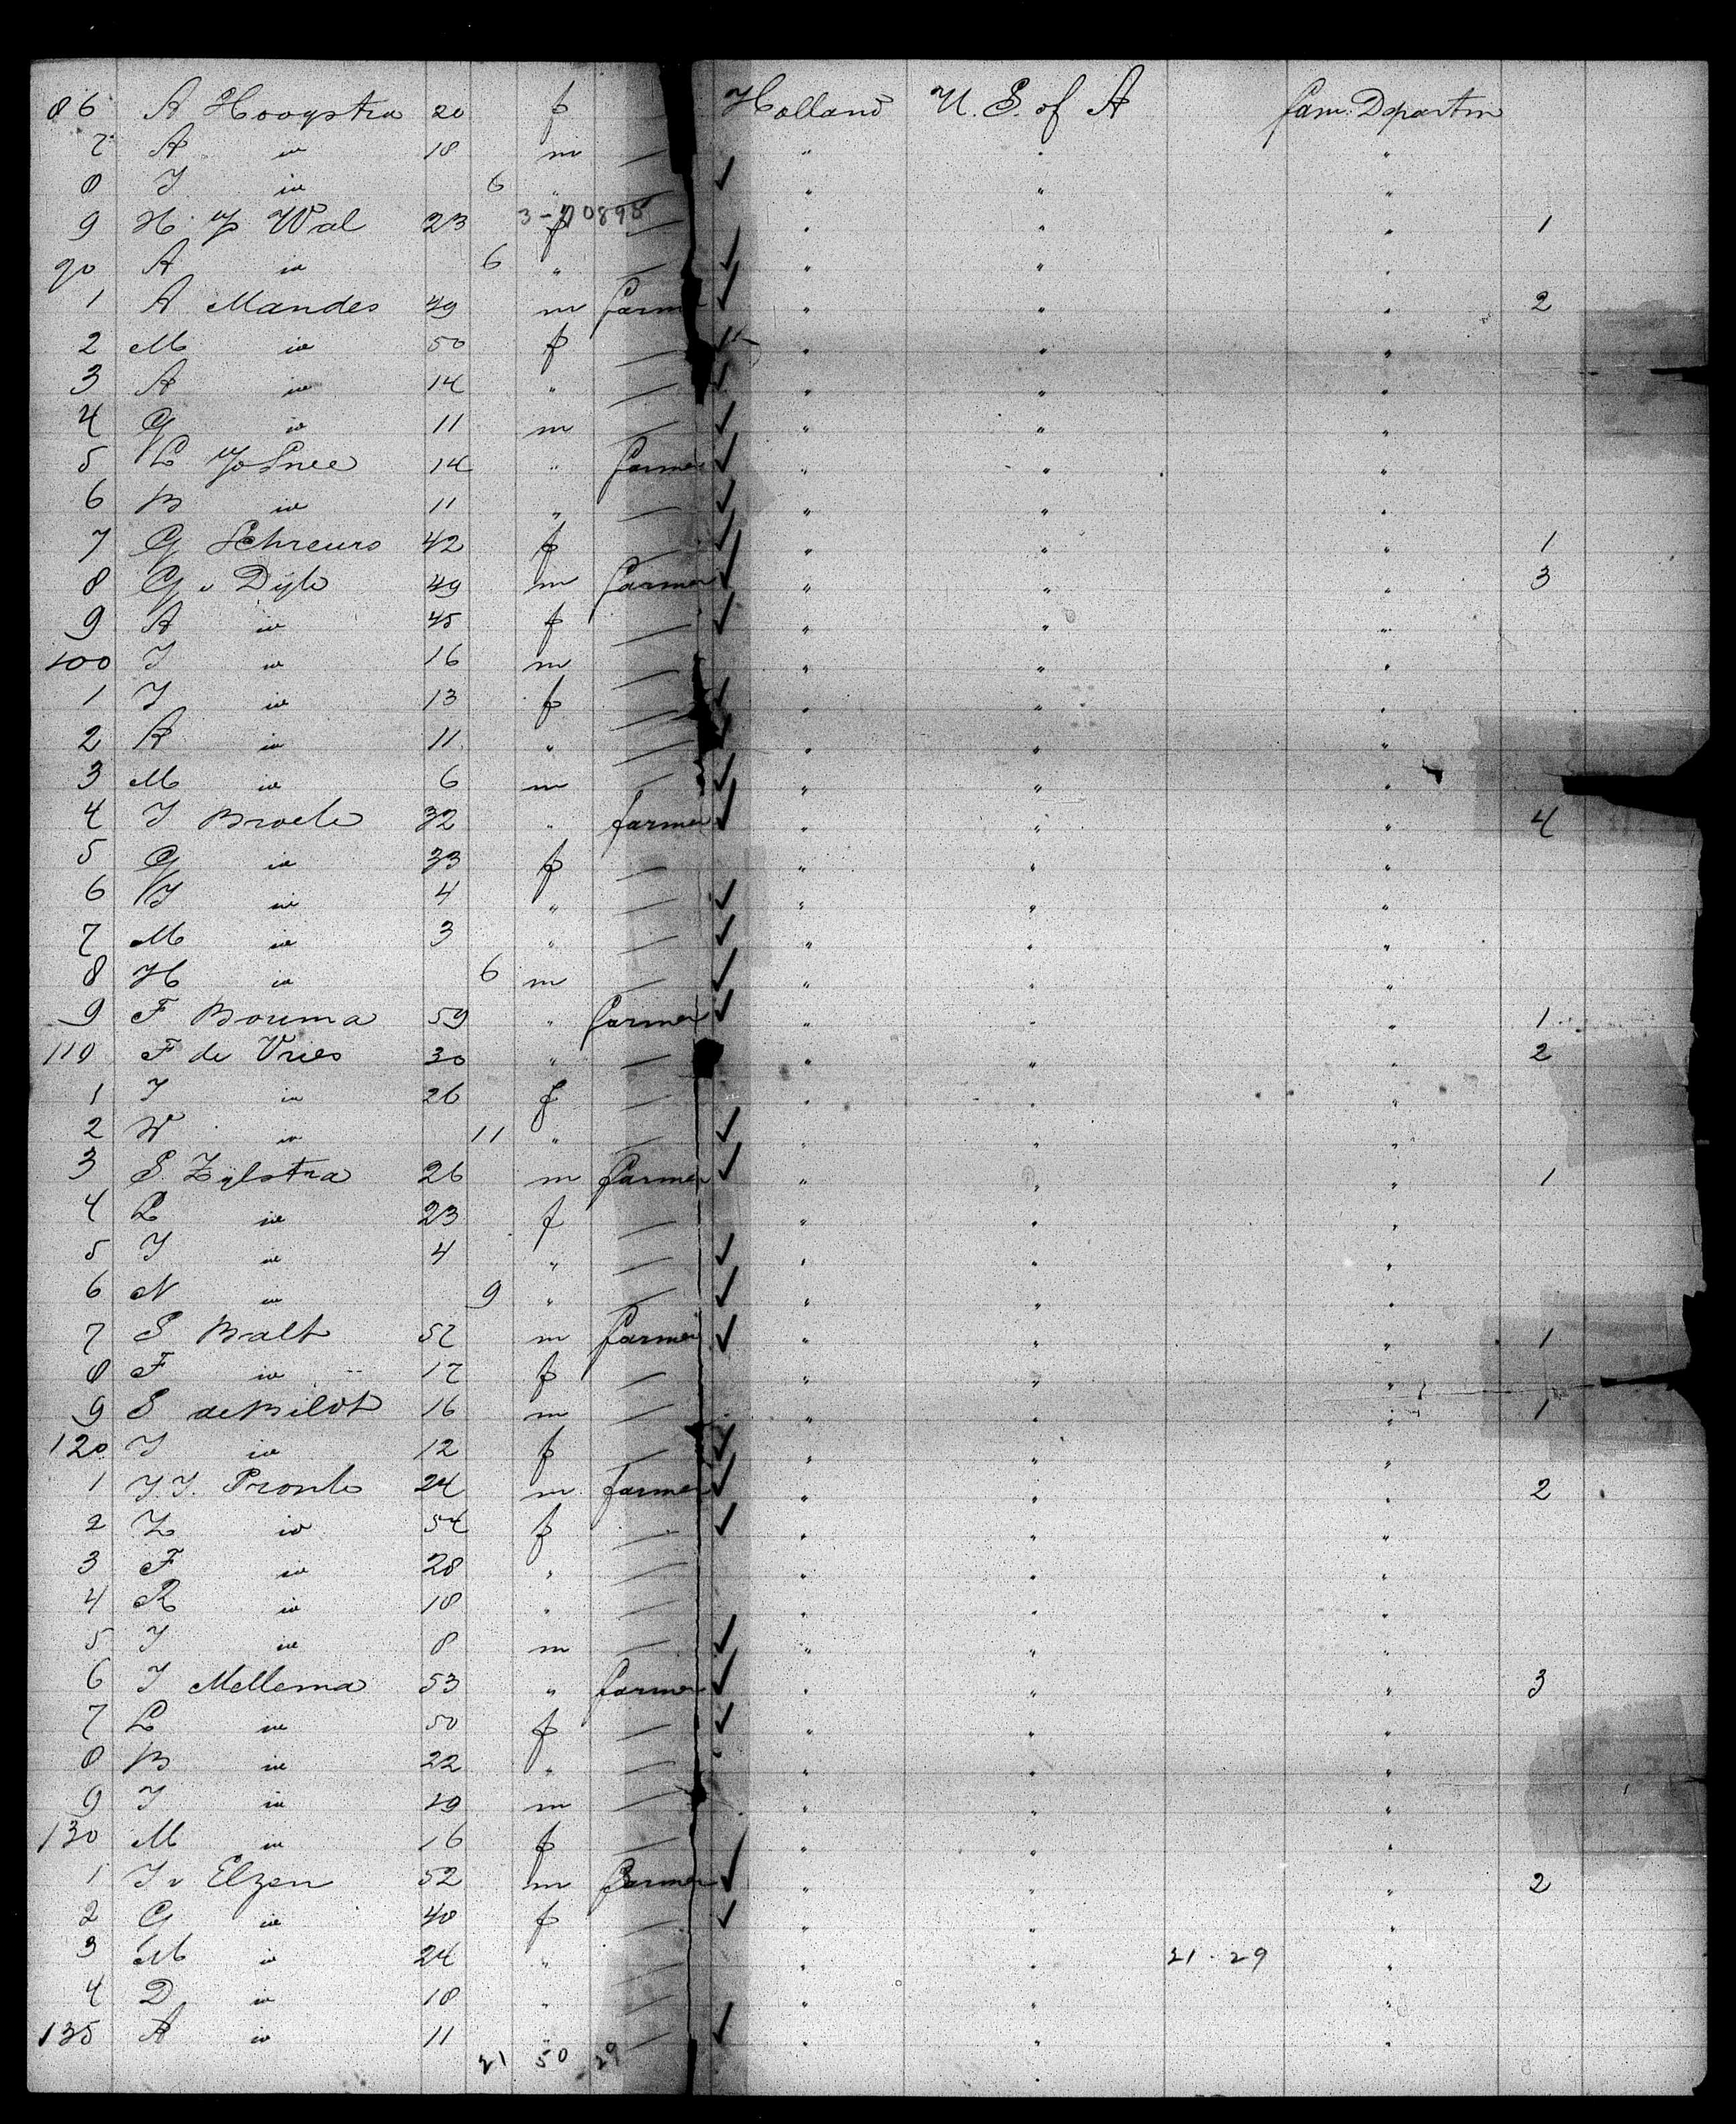 86 A Hoogstra 20 f Holland U. S. of A fam. Departm
7 A " 18 m — " " "
8 J " 6 " — ✓ " " "
9 H. Wal 23 f — " " " 1
3-70895
90 A " 6 " — ✓ " " "
1 A Mandes 49 m farmer ✓ " " " 2
2 M " 50 f — ✓ " " "
3 A " 14 " — ✓ " " "
4 G " 11 m — ✓ " " "
5 L 14 " farmer ✓ " " "
6 B " 11 " — ✓ " " "
7 G Schreurs 42 f — ✓ " " " 1
8 G v Dyk 49 m farmer ✓ " " " 3
9 A " 45 f — ✓ " " "
100 J " 16 m — " " "
1 J " 13 f — ✓ " " "
2 A " 11 " — ✓ " " "
3 M " 6 m — ✓ " " "
4 J Broek 32 " farmer ✓ " " " 4
5 G " 33 f — " " "
6 J " 4 " — ✓ " " "
7 M " 3 " — ✓ " " "
8 H " 6 m — ✓ " " "
9 F Bouma 59 " farmer ✓ " " " 1
110 F de Vries 30 " — " " " 2
1 J " 26 f — " " "
2 W " 11 " — ✓ " " "
3 S. Zylstra 26 m farmer ✓ " " " 1
4 L " 23 f — " " "
5 J " 4 " — ✓ " " "
6 N " 9 " — ✓ " " "
7 S Balt 57 m farmer ✓ " " " 1
8 F " 17 f — " " "
9 S de Bildt 16 m — " " " 1
120 J " 12 f — ✓ " " "
1 J. J. Pronk 24 m farmer ✓ " " " 2
2 Z " 54 f — ✓ " " "
3 F " 28 " — " " "
4 R " 18 " — " " "
5 J " 8 m — ✓ " " "
6 J Mellema 53 " farmer ✓ " " " 3
7 L " 50 f — ✓ " " "
8 B " 22 " — " " "
9 J " 19 m — " " "
130 M " 16 f — " " "
1 J v Elzen 52 m farmer ✓ " " " 2
2 G " 40 f — ✓ " " "
3 M " 24 " — " " 21-29 "
4 D " 18 " — " " "
135 A " 11 " — ✓ " " "
21 50 29